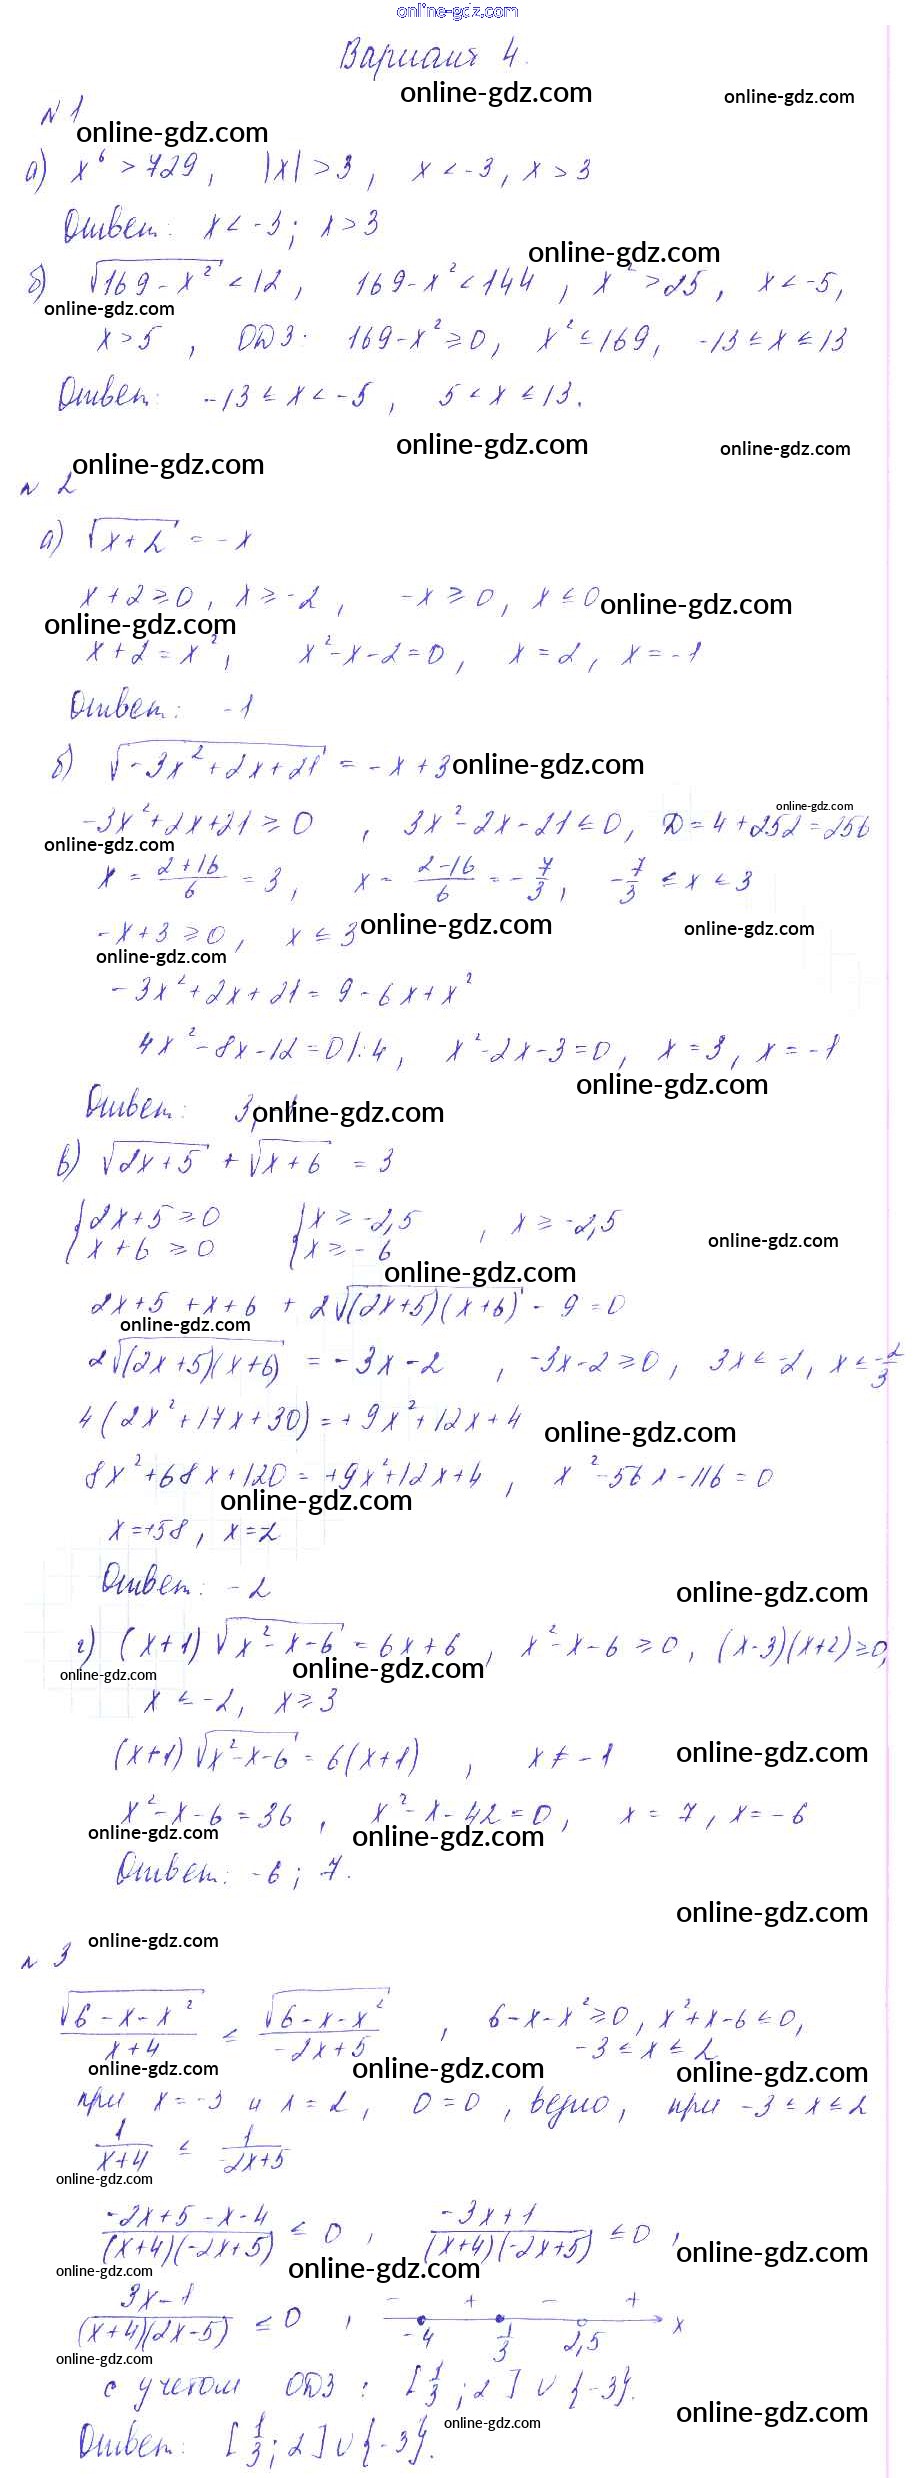 online-gdz.com
Вариант 4.
online-gdz.com
online-gdz.com
N 1
online-gdz.com
а) x⁶ > 729, |x| > 3, x < -3, x > 3
Ответ: x < -3; x > 3
online-gdz.com
б) √(169 - x²) < 12, 169 - x² < 144, x² > 25, x < -5,
online-gdz.com
x > 5, ОДЗ: 169 - x² ≥ 0, x² ≤ 169, -13 ≤ x ≤ 13
Ответ: -13 ≤ x < -5, 5 < x ≤ 13.
online-gdz.com
online-gdz.com
online-gdz.com
N 2
а) √(x+2) = -x
x + 2 ≥ 0, x ≥ -2, -x ≥ 0, x ≤ 0
online-gdz.com
online-gdz.com
x + 2 = x², x² - x - 2 = 0, x = 2, x = -1
Ответ: -1
б) √(-3x² + 2x + 21) = -x + 3
online-gdz.com
online-gdz.com
-3x² + 2x + 21 ≥ 0, 3x² - 2x - 21 ≤ 0, D = 4 + 252 = 256
online-gdz.com
x = (2+16)/6 = 3, x = (2-16)/6 = -7/3, -7/3 ≤ x ≤ 3
-x + 3 ≥ 0, x ≤ 3
online-gdz.com
online-gdz.com
online-gdz.com
-3x² + 2x + 21 = 9 - 6x + x²
4x² - 8x - 12 = 0 |:4, x² - 2x - 3 = 0, x = 3, x = -1
online-gdz.com
Ответ: 3,
online-gdz.com
в) √(2x+5) + √(x+6) = 3
{2x+5 ≥ 0 {x ≥ -2,5, x ≥ -2,5
{x+6 ≥ 0 {x ≥ -6
online-gdz.com
online-gdz.com
2x+5 + x+6 + 2√((2x+5)(x+6)) - 9 = 0
online-gdz.com
2√((2x+5)(x+6)) = -3x - 2, -3x-2 ≥ 0, 3x ≤ -2, x ≤ -2/3
4(2x² + 17x + 30) = +9x² + 12x + 4
online-gdz.com
8x² + 68x + 120 = +9x² + 12x + 4, x² - 56x - 116 = 0
online-gdz.com
x = +58, x = 2
Ответ: -2
online-gdz.com
г) (x+1)√(x² - x - 6) = 6x + 6, x² - x - 6 ≥ 0, (x-3)(x+2) ≥ 0,
online-gdz.com
online-gdz.com
x ≤ -2, x ≥ 3
(x+1)√(x²-x-6) = 6(x+1), x ≠ -1
online-gdz.com
x² - x - 6 = 36, x² - x - 42 = 0, x = 7, x = -6
online-gdz.com
online-gdz.com
Ответ: -6; 7.
online-gdz.com
online-gdz.com
N 3
√(6-x-x²)/(x+4) ≤ √(6-x-x²)/(-2x+5), 6-x-x² ≥ 0, x²+x-6 ≤ 0,
-3 ≤ x ≤ 2
online-gdz.com
online-gdz.com
online-gdz.com
при x = -3 и x = 2, 0 = 0, верно, при -3 ≤ x ≤ 2
1/(x+4) ≤ 1/(-2x+5)
online-gdz.com
(-2x+5-x-4)/((x+4)(-2x+5)) ≤ 0, (-3x+1)/((x+4)(-2x+5)) ≤ 0,
online-gdz.com
online-gdz.com
online-gdz.com
(3x-1)/((x+4)(2x-5)) ≤ 0, - + - +
-4 1/3 2,5 x
online-gdz.com
с учетом ОДЗ: [1/3; 2] ∪ {-3}.
online-gdz.com
online-gdz.com
Ответ: [1/3; 2] ∪ {-3}.